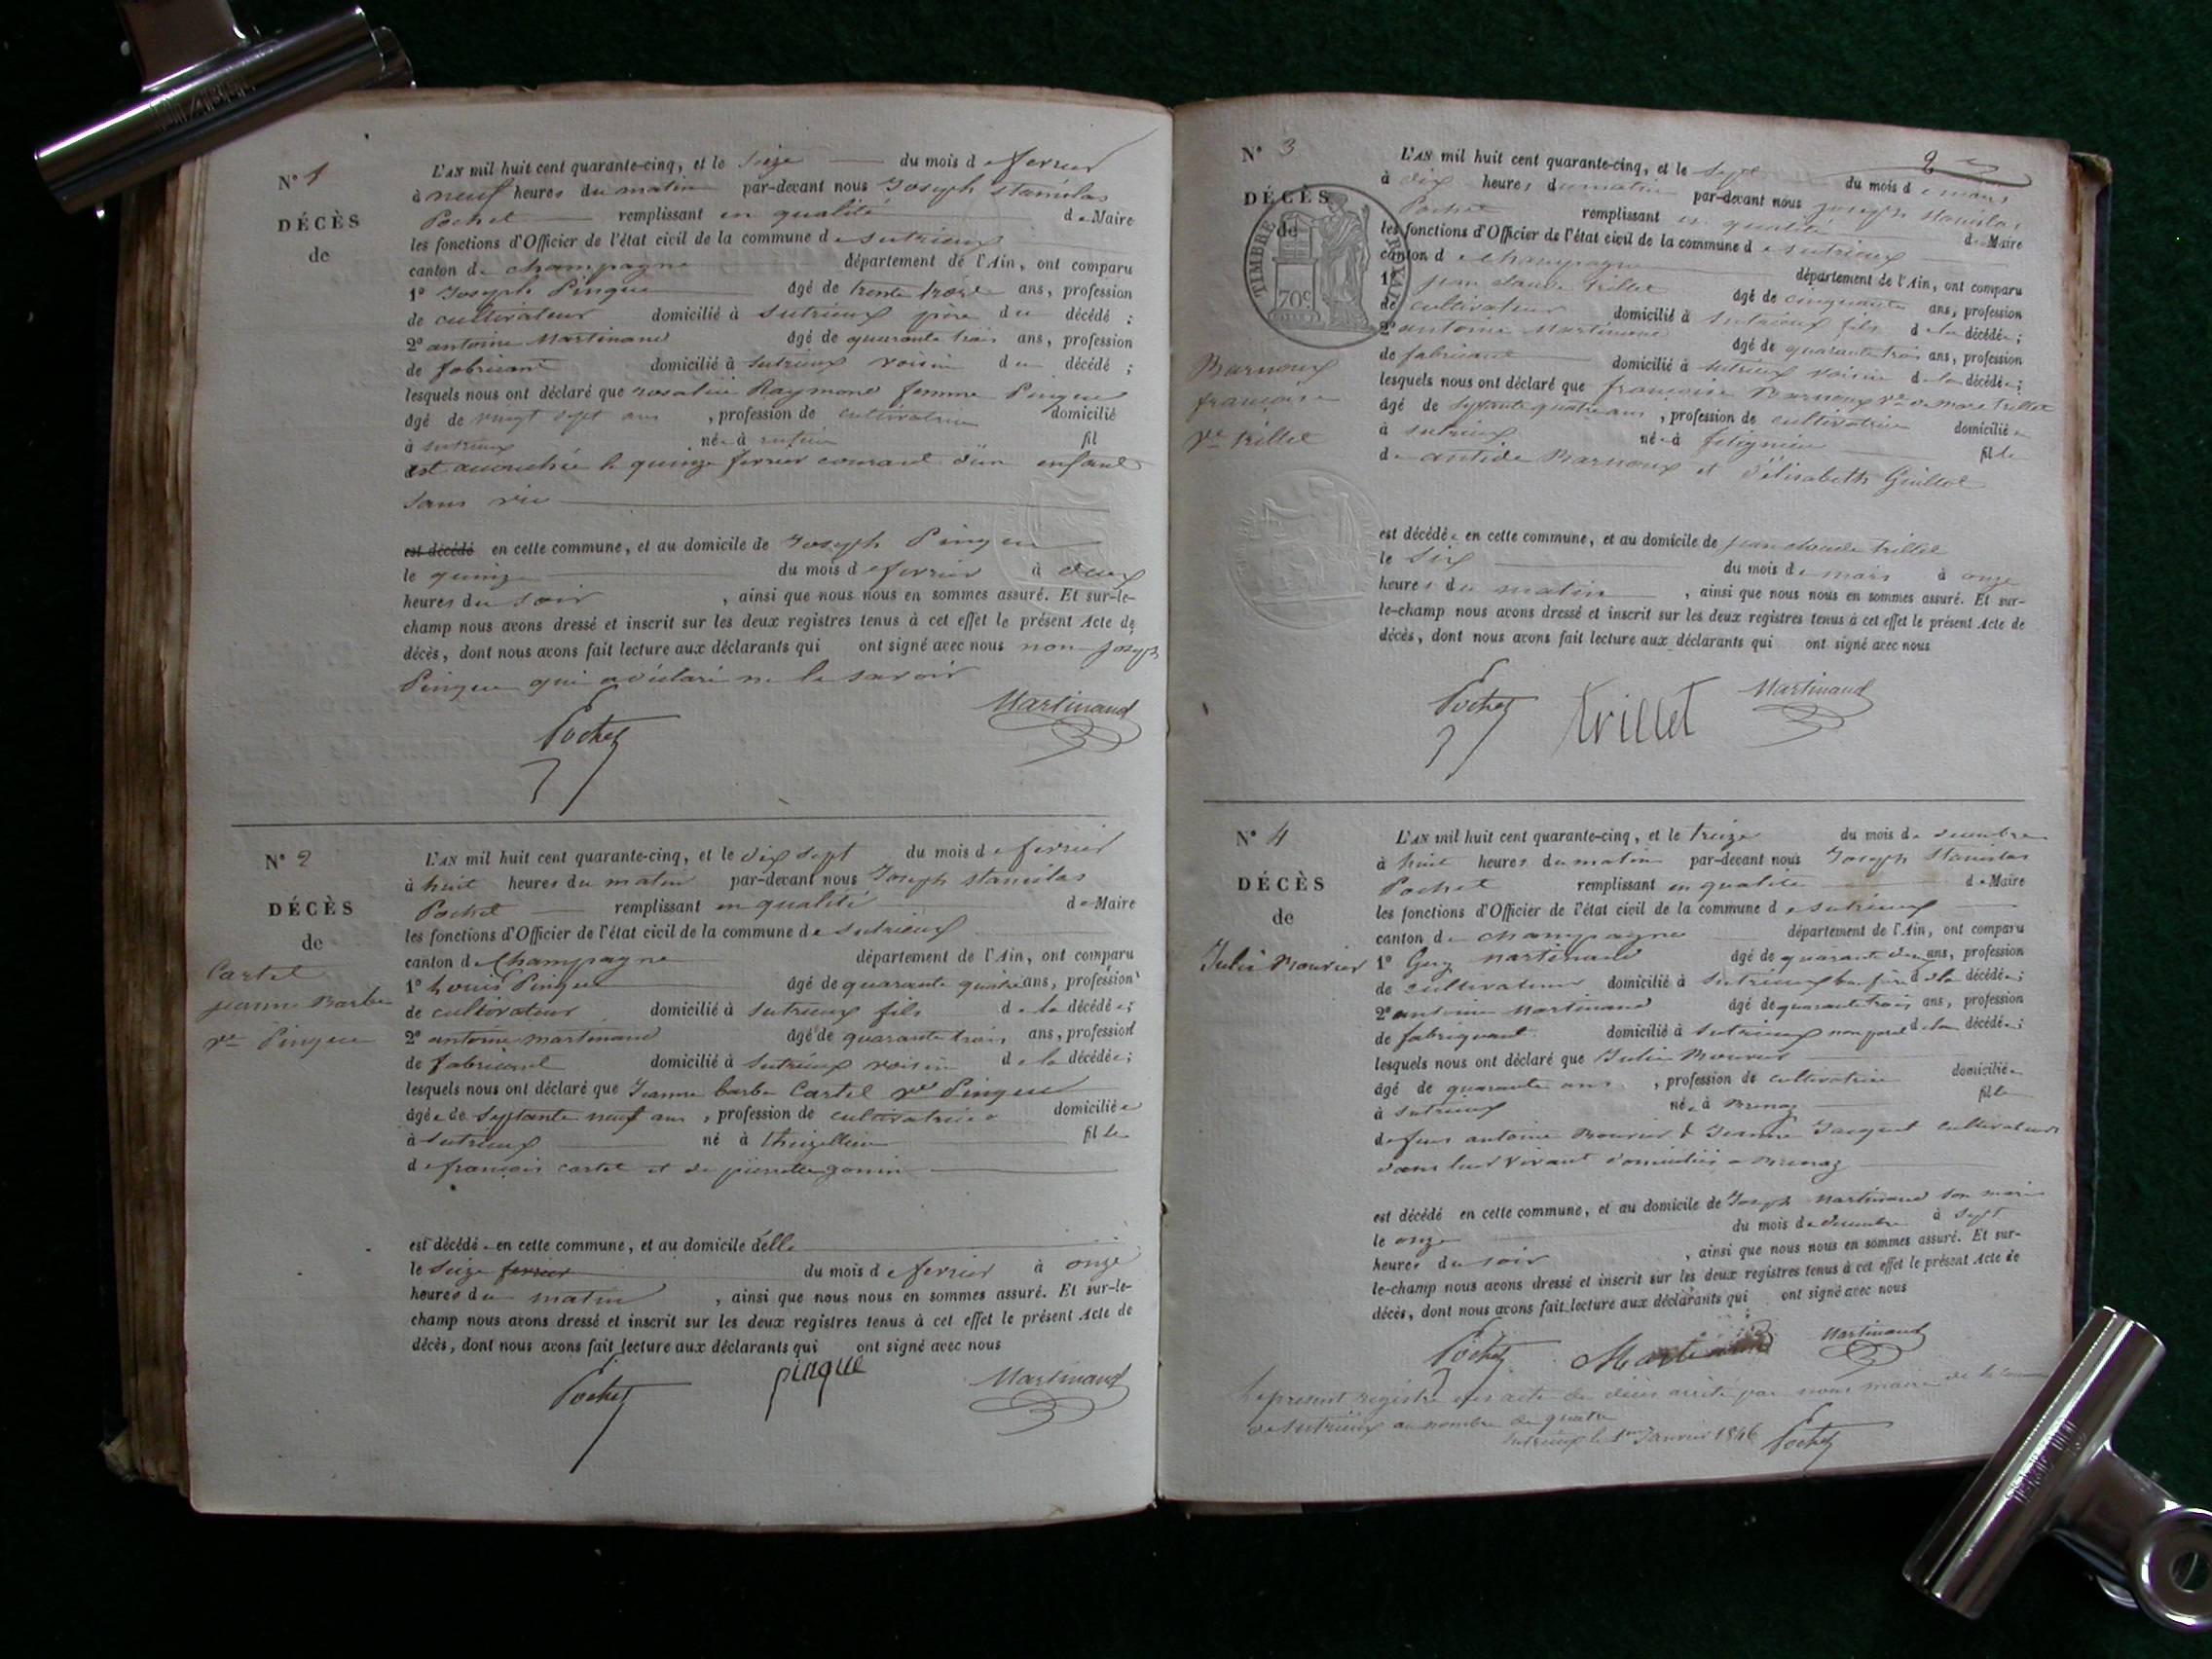 N° 1
DÉCÈS
de
L'AN mil huit cent quarante-cinq, et le seize du mois de fevrier
à neuf heures du matin par-devant nous Joseph stanislas
Pochet remplissant en qualité de Maire
les fonctions d'Officier de l'état civil de la commune de sutrieux
canton de champagne département de l'Ain, ont comparu
1° Joseph Pingue âgé de trente ans, profession
de cultivateur domicilié à sutrieux père du décédé ;
2° antoine Martinand âgé de quarante trois ans, profession
de fabricant domicilié à sutrieux voisin du décédé ;
lesquels nous ont déclaré que rosalie Raymond femme Pingue
âgé de vingt sept ans , profession de cultivatrice domicilié
à sutrieux née à fil
est accouchée le quinze fevrier courant d'un enfant
sans vie
est décédé en cette commune, et au domicile de Joseph Pingue
le quinze du mois de fevrier à deux
heures du soir , ainsi que nous nous en sommes assuré. Et sur-le-
champ nous avons dressé et inscrit sur les deux registres tenus à cet effet le présent Acte de
décès, dont nous avons fait lecture aux déclarants qui ont signé avec nous non Joseph
Pingue qui a déclaré ne le savoir
Pochet Martinand
N° 2
DÉCÈS
de
Cartel
jeanne Barbe
ve Pingue
L'AN mil huit cent quarante-cinq, et le dix sept du mois de fevrier
à huit heures du matin par-devant nous Joseph stanislas
Pochet remplissant en qualité de Maire
les fonctions d'Officier de l'état civil de la commune de sutrieux
canton de Champagne département de l'Ain, ont comparu
1° Louis Pingue âgé de quarante quatre ans, profession
de cultivateur domicilié à sutrieux fils de la décédée ;
2° antoine martinand âgé de quarante trois ans, profession
de fabricant domicilié à sutrieux voisin de la décédée ;
lesquels nous ont déclaré que Jeanne barbe Cartel ve Pingue
âgée de septante neuf ans , profession de cultivatrice domiciliée
à sutrieux né à thezillieu fille
de françois cartel et de pierrette gonin
est décédée en cette commune, et au domicile d'elle
le seize fevrier du mois de fevrier à onze
heures du matin , ainsi que nous nous en sommes assuré. Et sur-le-
champ nous avons dressé et inscrit sur les deux registres tenus à cet effet le présent Acte de
décès, dont nous avons fait lecture aux déclarants qui ont signé avec nous
Pochet pingue Martinand
2
N° 3
DÉCÈS
de
TIMBRE ROYAL
70c
Barnoux
françoise
ve trillet
L'AN mil huit cent quarante-cinq, et le sept du mois de mars
à dix heures du matin par-devant nous joseph stanislas
Pochet remplissant en qualité de Maire
les fonctions d'Officier de l'état civil de la commune de sutrieux
canton de champagne département de l'Ain, ont comparu
1° jean claude trillet âgé de cinquante ans, profession
de cultivateur domicilié à sutrieux fils de la décédée ;
2° antoine Martinand âgé de quarante trois ans, profession
de fabricant domicilié à sutrieux voisin de la décédée ;
lesquels nous ont déclaré que françoise Barnoux ve de marc trillet
âgé de septante quatre ans , profession de cultivatrice domiciliée
à sutrieux née à fitignieu fille
de antide Barnoux et d'élisabeth Guillot
est décédée en cette commune, et au domicile de jean claude trillet
le six du mois de mars à onze
heures du matin , ainsi que nous nous en sommes assuré. Et sur-
le-champ nous avons dressé et inscrit sur les deux registres tenus à cet effet le présent Acte de
décès, dont nous avons fait lecture aux déclarants qui ont signé avec nous
Pochet trillet Martinand
N° 4
DÉCÈS
de
Julie Bouvier
L'AN mil huit cent quarante-cinq, et le treize du mois de decembre
à huit heures du matin par-devant nous Joseph Stanislas
Pochet remplissant en qualité de Maire
les fonctions d'Officier de l'état civil de la commune de sutrieux
canton de champagne département de l'Ain, ont comparu
1° martinand âgé de quarante deux ans, profession
de cultivateur domicilié à sutrieux beau frère de la décédée ;
2° antoine Martinand âgé de quarante trois ans, profession
de fabriquant domicilié à sutrieux non parent de la décédée ;
lesquels nous ont déclaré que Julie Bouvier
âgé de quarante ans , profession de cultivatrice domiciliée
à sutrieux née à Brenaz fille
de feus antoine Bouvier & Jeanne Jacquet cultivateurs
dans leur vivant domiciliés a Brenaz
est décédé en cette commune, et au domicile de Joseph Martinand son mari
le onze du mois de decembre à sept
heures du soir , ainsi que nous nous en sommes assuré. Et sur-
le-champ nous avons dressé et inscrit sur les deux registres tenus à cet effet le présent Acte de
décès, dont nous avons fait lecture aux déclarants qui ont signé avec nous
Pochet Martinand Martinand
Le present registre des acte de décès arrêté par nous maire de la commune
de sutrieux au nombre de quatre
sutrieux le 1er Janvier 1846 Pochet